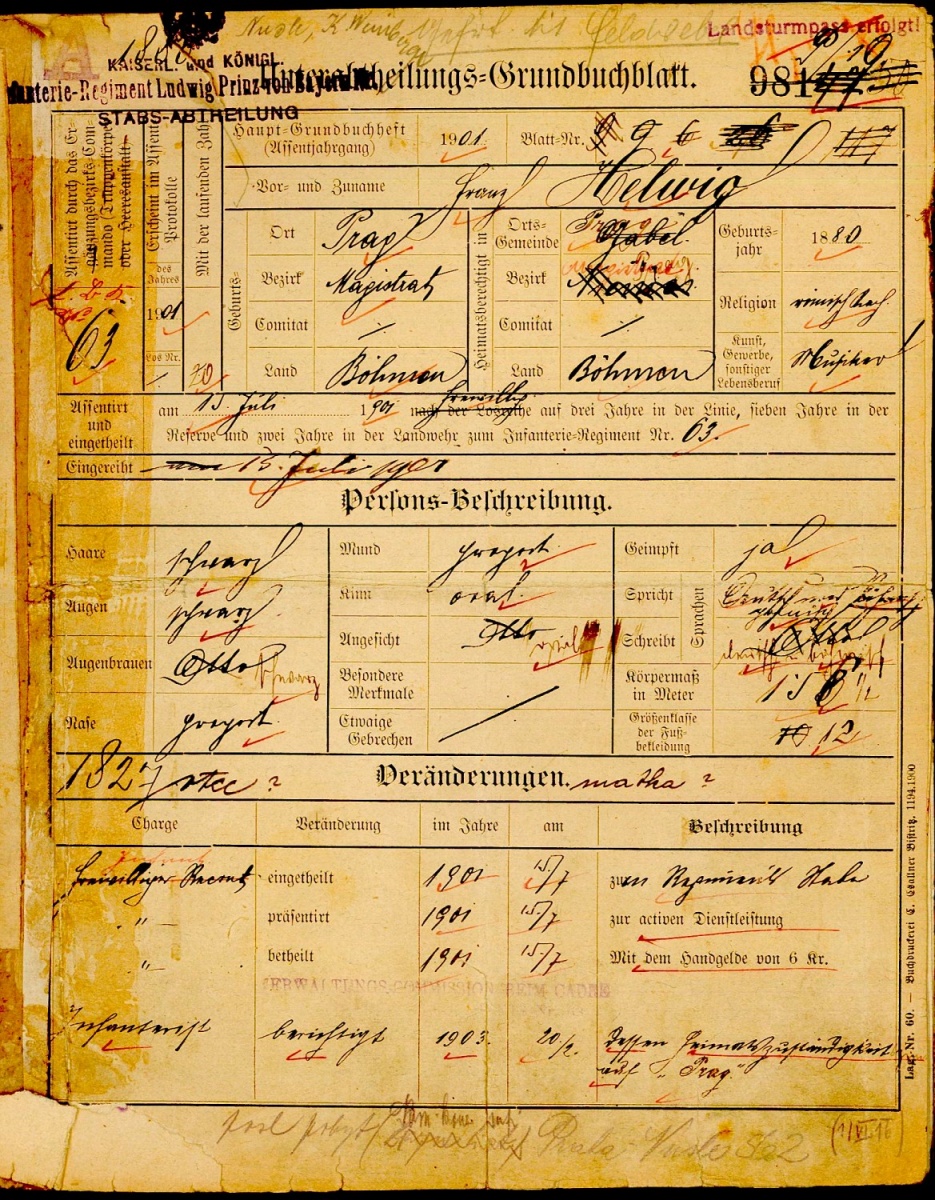 Landsturmpass erfolgt!
KAISERL. und KÖNIGL.
Infanterie-Regiment Ludwig Prinz von Bayern
STABS-ABTHEILUNG
Unterabtheilungs-Grundbuchblatt.
981
Assentirt durch das Ergänzungsbezirks-Commando (Truppenkörper oder Heeresanstalt)
63
Erscheint im Assent Protokolle
des Jahres
1901
Los Nr.
/.
Mit der laufenden Zahl
70
Haupt-Grundbuchheft (Assentjahrgang) 1901 Blatt-Nr. 9 6
Vor- und Zuname Franz Helwig
Geburts-
Ort Prag
Bezirk Magistrat
Comitat /.
Land Böhmen
Heimatsberechtigt in
Orts-Gemeinde Prag Gabel
Bezirk
Comitat /.
Land Böhmen
Geburtsjahr 1880
Religion römisch kath.
Kunst, Gewerbe, sonstiger Lebensberuf Musiker
Assentirt und eingetheilt am 15. Juli 1901 nach der Losreihe freiwillig auf drei Jahre in der Linie, sieben Jahre in der
Reserve und zwei Jahre in der Landwehr zum Infanterie-Regiment Nr. 63.
Eingereiht am 15. Juli 1901
Persons-Beschreibung.
Haare schwarz
Augen schwarz
Augenbrauen Otto schwarz
Nase proport.
Mund proport.
Kinn oval
Angesicht Otto oval
Besondere Merkmale
Etwaige Gebrechen
Geimpft ja
Sprachen
Spricht Deutsch und böhmisch
Schreibt Otto deutsch u. böhmisch
Körpermaß in Meter 1 5 6 1/2
Größenklasse der Fußbekleidung 12
1827 otec ? Veränderungen. matka ?
Charge Veränderung im Jahre am Beschreibung
Infant
freiwilliger Recrut eingetheilt 1901 15/7 zum Regiments Stabe
" präsentirt 1901 15/7 zur activen Dienstleistung
" betheilt 1901 15/7 Mit dem Handgelde von 6 Kr.
VERWALTUNGS-COMMISSION BEIM CADRE
Infanterist berichtigt 1903 20/2. Dessen Heimatzuständigkeit
auf "Prag"
Praha Nusle 562
(1/VI 16)
Lag.-Nr. 60. — Buchdruckerei E. Csallner Bistritz. 1194.1900